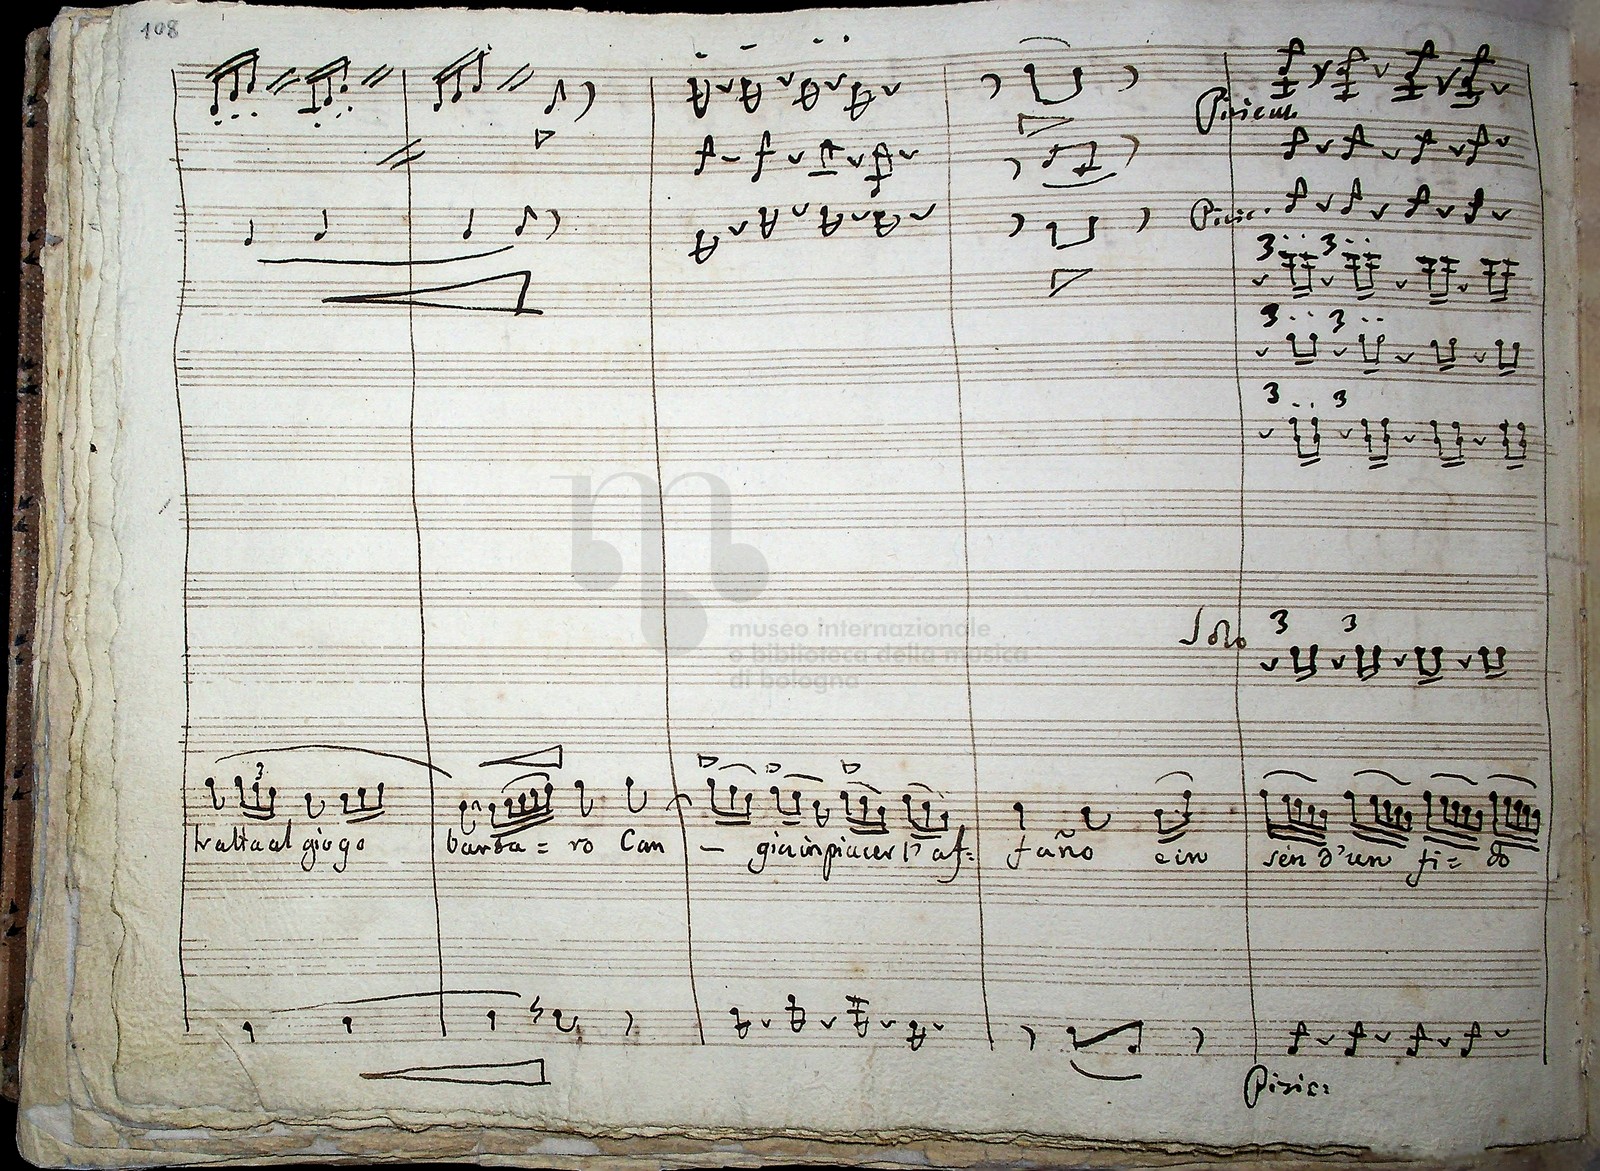 108
Pizicat.
Pizic:
3 3
3 3
3 3
museo internazionale
e biblioteca della musica
di bologna
Solo
3 3
3
tratta al giogo barba = ro Can - gia in piacer l' af= fanno e in sen d'un fi= do
Pizic: